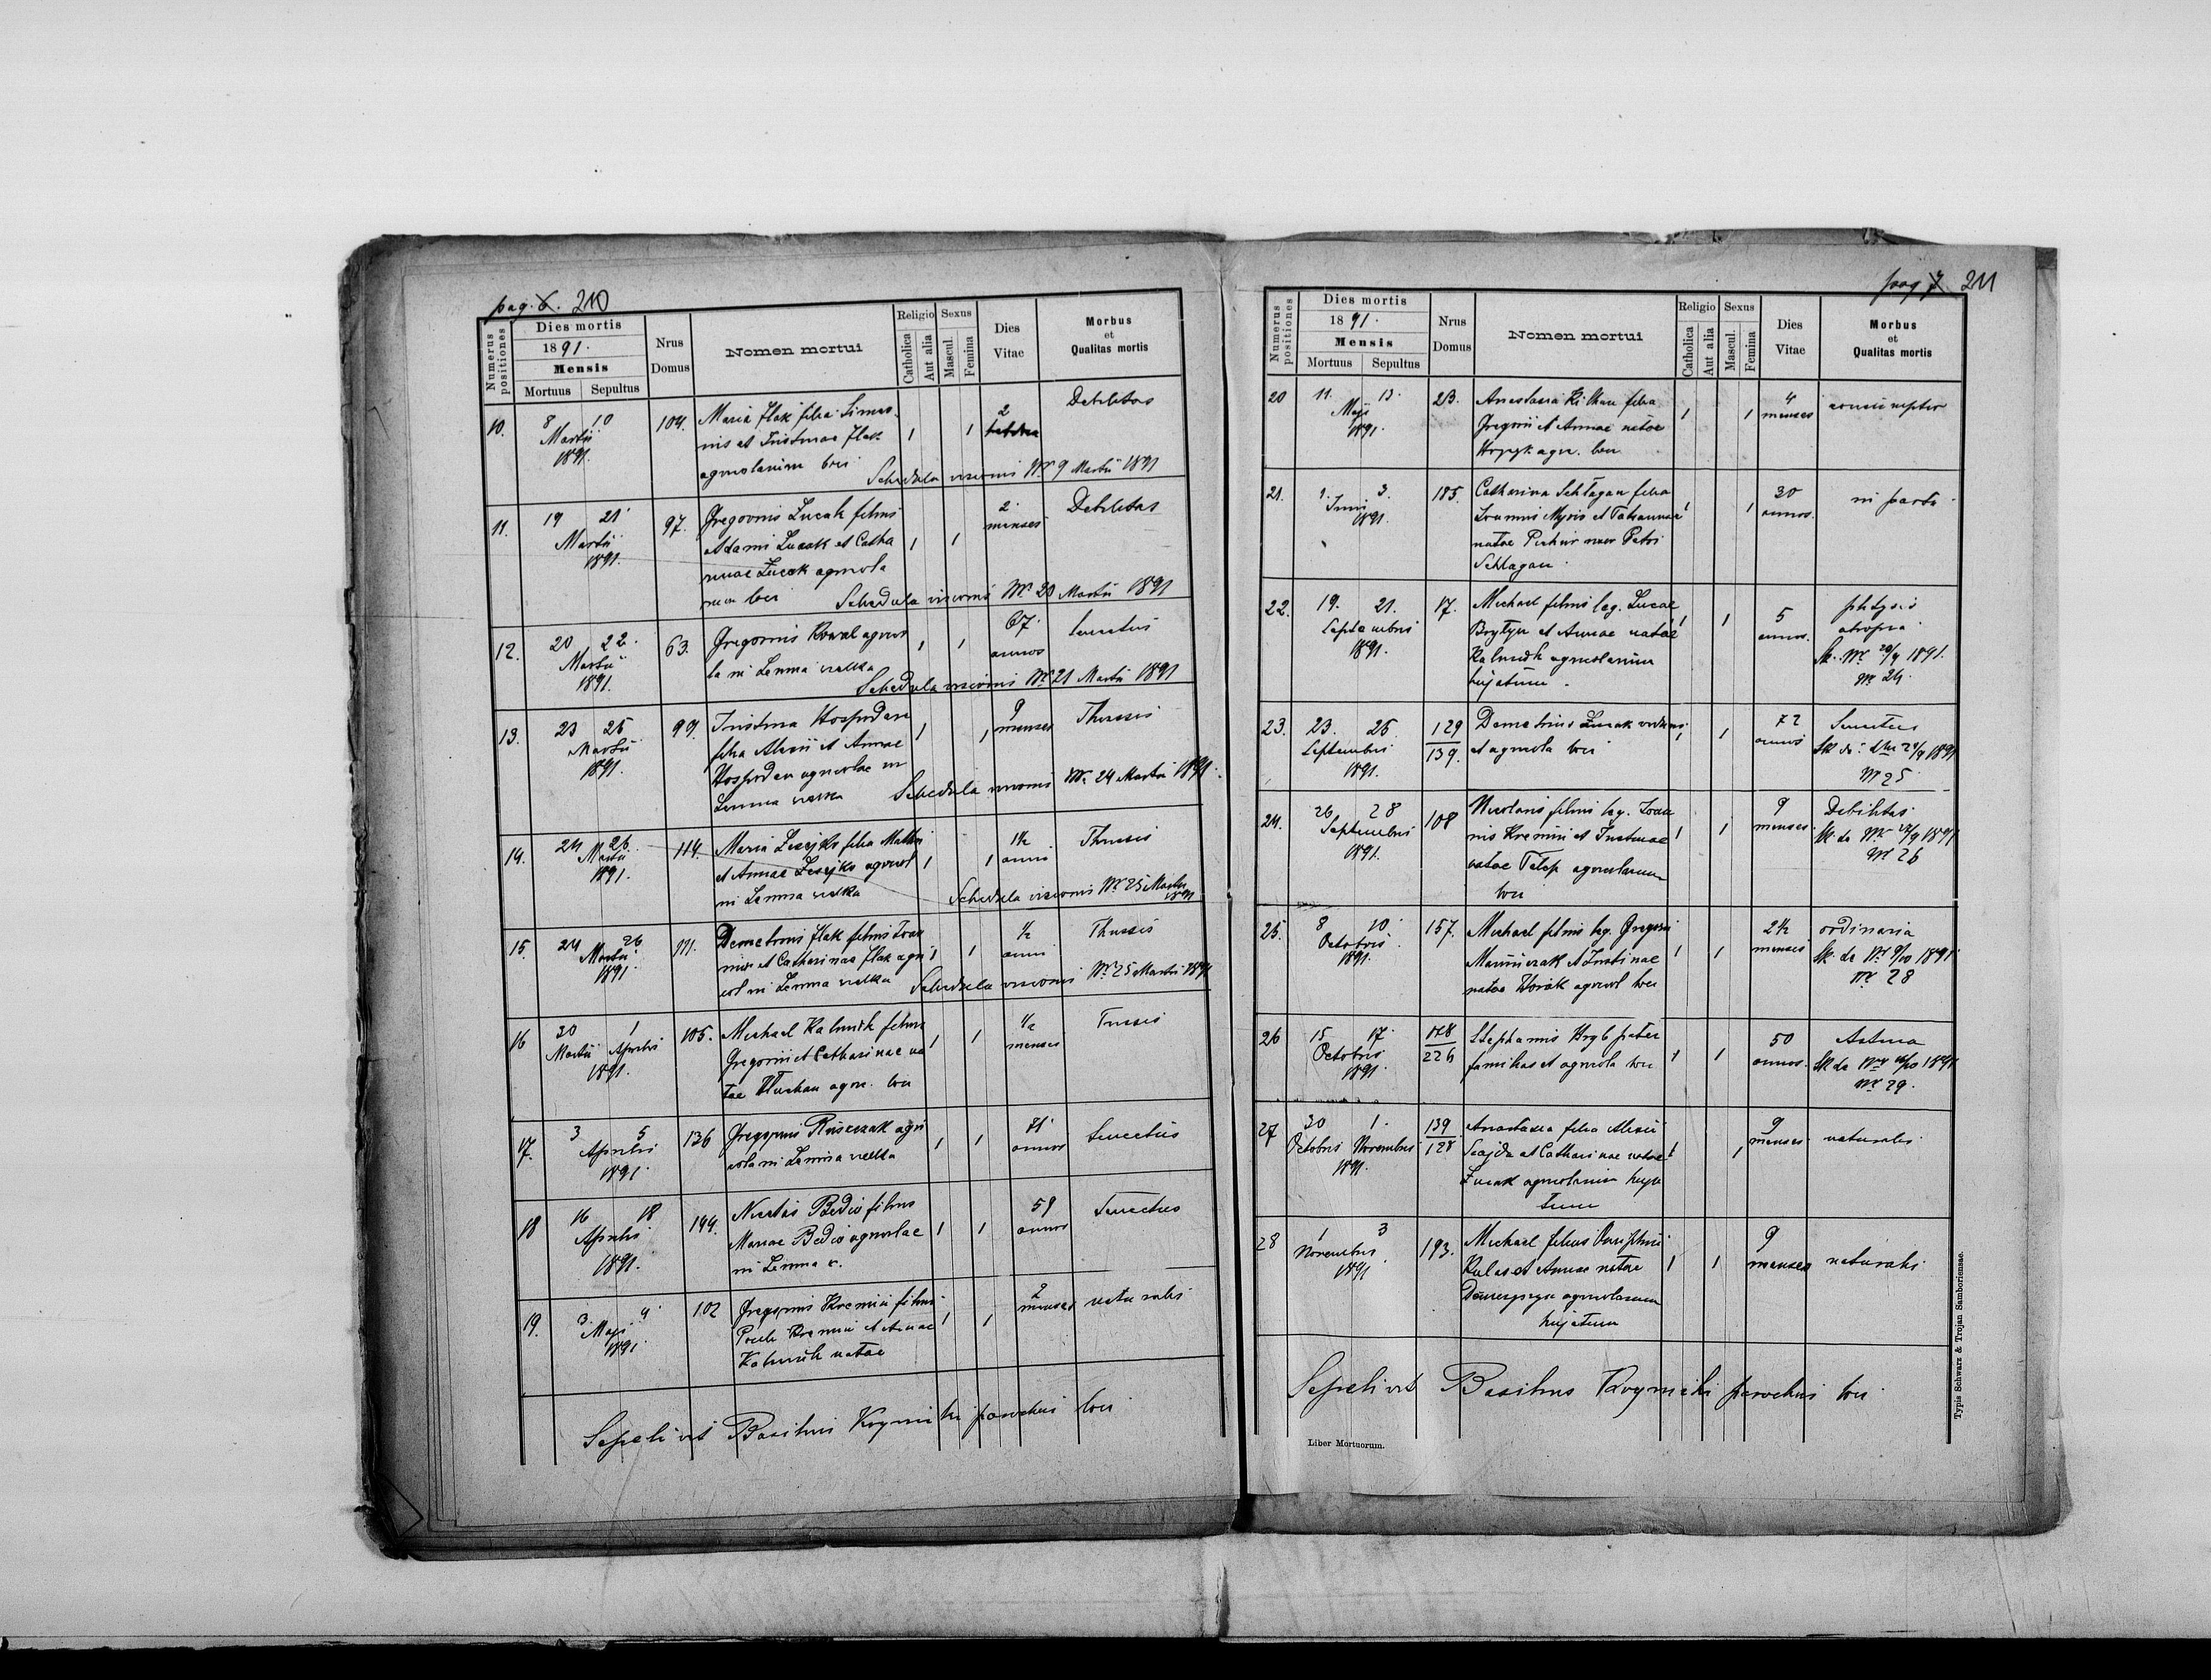 pag. 6. 210
Numerus positiones
Dies mortis
1891.
Mensis
Mortuus Sepultus
Nrus Domus
Nomen mortui
Religio
Catholica
Aut alia
Sexus
Mascul.
Femina
Dies Vitae
Morbus et Qualitas mortis
10. 8 10 104. Maria Flak filia Simeo- 1 1 2 Debilitas
Martii nis et Justinae Flak
1891. agricolarum loci Schedula visionis Nr 9 Martii 1891
11. 19 21 97. Gregorius Lucak filius 1 1 2 Debilitas
Martii Adami Lucak et Catha menses
1891. rinae Lucak agricola
rum loci Schedula visionis Nr 20 Martii 1891
12. 20 22. 63. Gregorius Kowal agrico 1 1 67 Senectus
Martii la in Lenina wielka annos
1891. Schedula visionis Nr 21 Martii 1891
13. 23 25 99. Justina Hospodar 1 1 9 Thussis
Martii filia Alexii et Annae menses
1891. Hospodar agricolae in
Lenina wielka Schedula visionis Nr. 24 Martii 1891.
14. 24 26 114. Maria filia 1 1 1½ Thussis
Martii et Annae agricol anni
1891. in Lenina wielka Schedula visionis Nr 25 Martii 1891
15. 24 26 111. Demetrius Flak filius Joan 1 1 ½ Thussis
Martii nis et Catharinae Flak agri anni
1891. col in Lenina wielka Schedula visionis Nr 25 Martii 1891
16 30 1 105. Michael Kalmuk filius 1 1 ½ Tussis
Martii Aprilis Gregorii et Catharinae na menses
1891. tae agric. loci
17. 3 5 136 Gregorius agri 1 1 71 Senectus
Aprilis cola in Lenina wielka annos
1891.
18 16 18 144. Nicetas Bedio filius 1 1 59 Senectus
Aprilis Mariae Bedio agricolae annos
1891. in Lenina w.
19. 3. 4 102 Gregorius Kremin filius 1 1 2 naturalis
Maji Pauli Kremin et Annae menses
1891 Kalmuk natae
Sepelivit Basilius parochus loci
pag 7 211
Numerus positiones
Dies mortis
1891.
Mensis
Mortuus Sepultus
Nrus Domus
Nomen mortui
Religio
Catholica
Aut alia
Sexus
Mascul.
Femina
Dies Vitae
Morbus et Qualitas mortis
20 11. 13. 23. Anastasia filia 1 1 4 consumptio
Maji Gregorii et Annae natae menses
1891. agr. loci
21. 1. 3. 185. Catharina Schlagan filia 1 1 30 in partu
Junii Joannis et annos.
1891. natae uxor Petri
Schlagan
22. 19. 21. 17. Michael filius leg. Lucae 1 1 5 phtysis
Septembris et Annae natae annos. atropia
1891. Kalmuk agricolarum Sk. Nr 20/9 1891.
hujatum. Nr 24.
23. 23. 25 129/139. Demetrius Lucak viduus 1 1 72 Senectus
Septembris et agricola loci annos 24/9 1891
1891. Nr 25
24. 26 28 108 Nicolaus filius leg. Joan 1 1 9 Debilitas
Septembris nis Kremin et Justinae menses. Sk. de Nr 27/9 1891
1891. natae Telep agricolarum Nr 26
loci
25. 8 10 157. Michael filius leg. Gregorii 1 1 2½ ordinaria
Octobris et Justinae menses Sk. de Nr 9/10 1891
1891. natae agricol loci Nr 28
26 15 17 178/226 Stephanus Hryb pater 1 1 50 Astma
Octobris familias et agricola loci annos. Sk de Nr 16/10 1891
1891. Nr 29.
27 30 1. 139/128 Anastasia filia Alexii 1 1 9 naturalis
Octobris Novembris Scajda et Catharinae natae menses
1891. Lucak agricolarum huja
tum
28 1 3 193. Michael filius Onuphrii 1 1 9 naturalis
Novembris Kulas et Annae natae menses
1891 agricolarum
hujatum
Sepelivit Basilius parochus loci
Liber Mortuorum.
Typis Schwarz & Trojan Samboriensae.